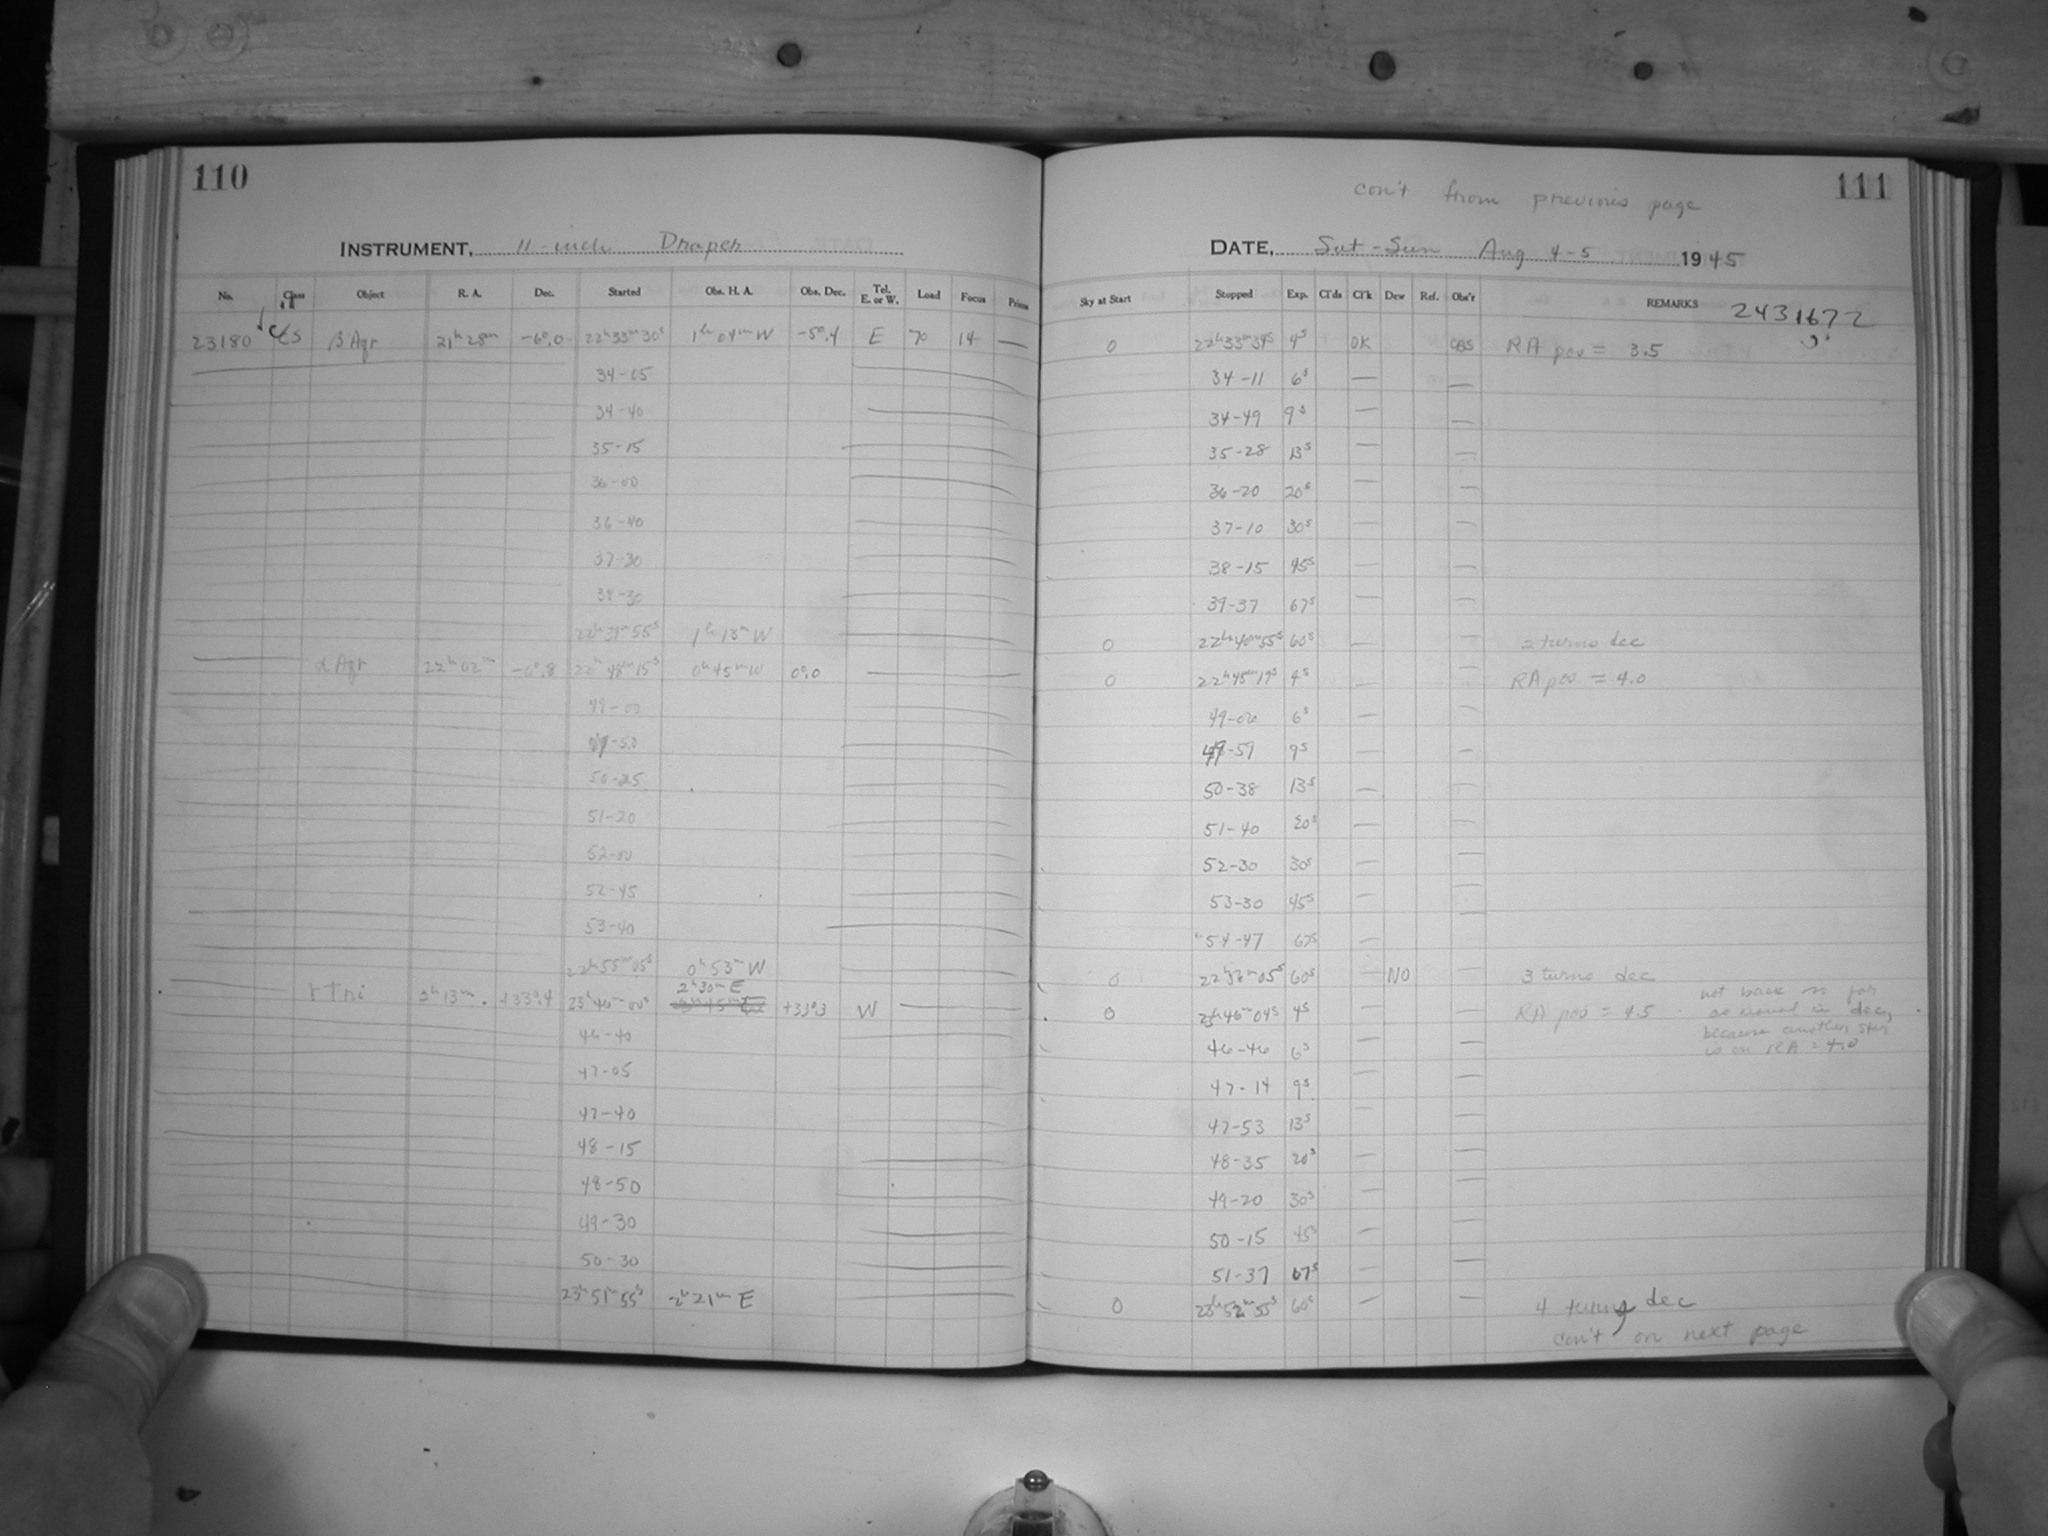 110
INSTRUMENT, 11-inch Draper
No. Class Object R. A. Dec. Started Obs. H. A. Obs. Dec. Tel. E. or W. Load Focus Prisms
23180 β Aqr 21h 28m -6°.0 22h 33m 30s 1h 04m W -5°.4 E 70 14 —
34-05
34-40
35-15
36-00
36-40
37-30
38-30
22h 39m 55s 1h 13m W
α Aqr 22h 02m -0°.8 22h 48m 15s 0h 45m W 0°.0
49-00
49-50
50-25
51-20
52-00
52-45
53-40
22h 55m 05s 0h 53m W
2h 30m E
r Tri 2h 13m. +33°.4 23h 46m 00s +33°.3 W
46-40
47-05
47-40
48-15
48-50
49-30
50-30
23h 51m 55s 2h 21m E
con't from previous page 111
DATE, Sat-Sun Aug 4-5 1945
Sky at Start Stopped Exp. Cl'ds Cl'k Dew Ref. Obs'r REMARKS 2431672
0 22h 33m 34s 4s OK RA pos = 3.5
34-11 6s — —
34-49 9s — —
35-28 13s — —
36-20 20s — —
37-10 30s — —
38-15 45s — —
39-37 67s — —
0 22h 40m 55s 60s — — 2 turns dec
0 22h 48m 19s 4s — — RA pos = 4.0
49-06 6s — —
49-59 9s — —
50-38 13s — —
51-40 20s — —
52-30 30s — —
53-30 45s — —
54-47 67s — —
0 22h 56m 05s 60s — NO — 3 turns dec
0 23h 46m 04s 4s — — RA pos = 4.5 not back as far
as usual in dec,
because another star
is on RA = 4.0
46-46 6s — —
47-14 9s — —
47-53 13s — —
48-35 20s — —
49-20 30s — —
50-15 45s — —
51-37 67s — —
0 23h 52m 55s 60s — — 4 turns dec
con't on next page